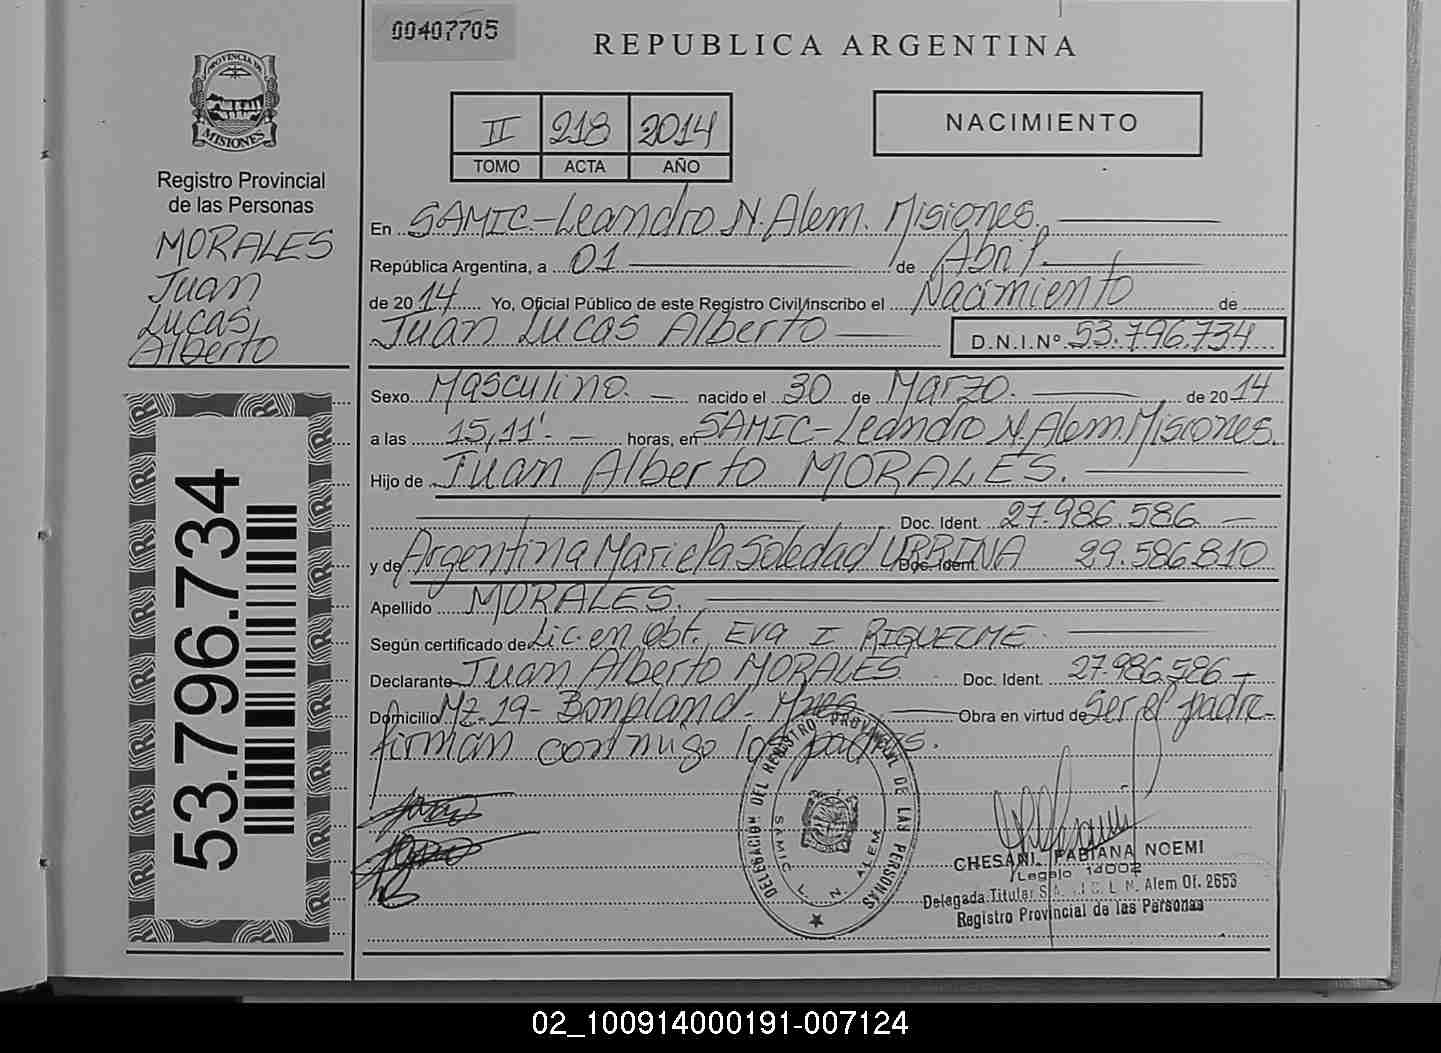 00407705
REPUBLICA ARGENTINA
PROVINCIA DE
MISIONES
Registro Provincial
de las Personas
MORALES
Juan
Lucas
Alberto
II 218 2014
TOMO ACTA AÑO
NACIMIENTO
En SAMIC-Leandro N. Alem. Misiones.
República Argentina, a 01 de Abril.
de 2014 Yo, Oficial Público de este Registro Civil inscribo el Nacimiento de
Juan Lucas Alberto D.N.I.Nº 53.796.734
Sexo Masculino. nacido el 30 de Marzo. de 2014
a las 15,11'. horas, en SAMIC-Leandro N. Alem. Misiones.
Hijo de Juan Alberto MORALES.
Doc. Ident. 27.986.586
y de Argentina Mariela Soledad URRINA Doc. Ident. 29.586.810
Apellido MORALES.
Según certificado de Lic. en Obt. Eva I RIQUELME.
Declarante Juan Alberto MORALES Doc. Ident. 27.986.586
Domicilio Mz. 19- Bonpland- Mnes Obra en virtud de Ser el padre-
firman conmigo los padres.
53.796.734
DELEGACION DEL REGISTRO PROVINCIAL DE LAS PERSONAS
SAMIC L. N. ALEM
CHESANI, FABIANA NOEMI
Legajo 14002
Delegada Titular L. N. Alem Of. 2653
Registro Provincial de las Personas
02_100914000191-007124